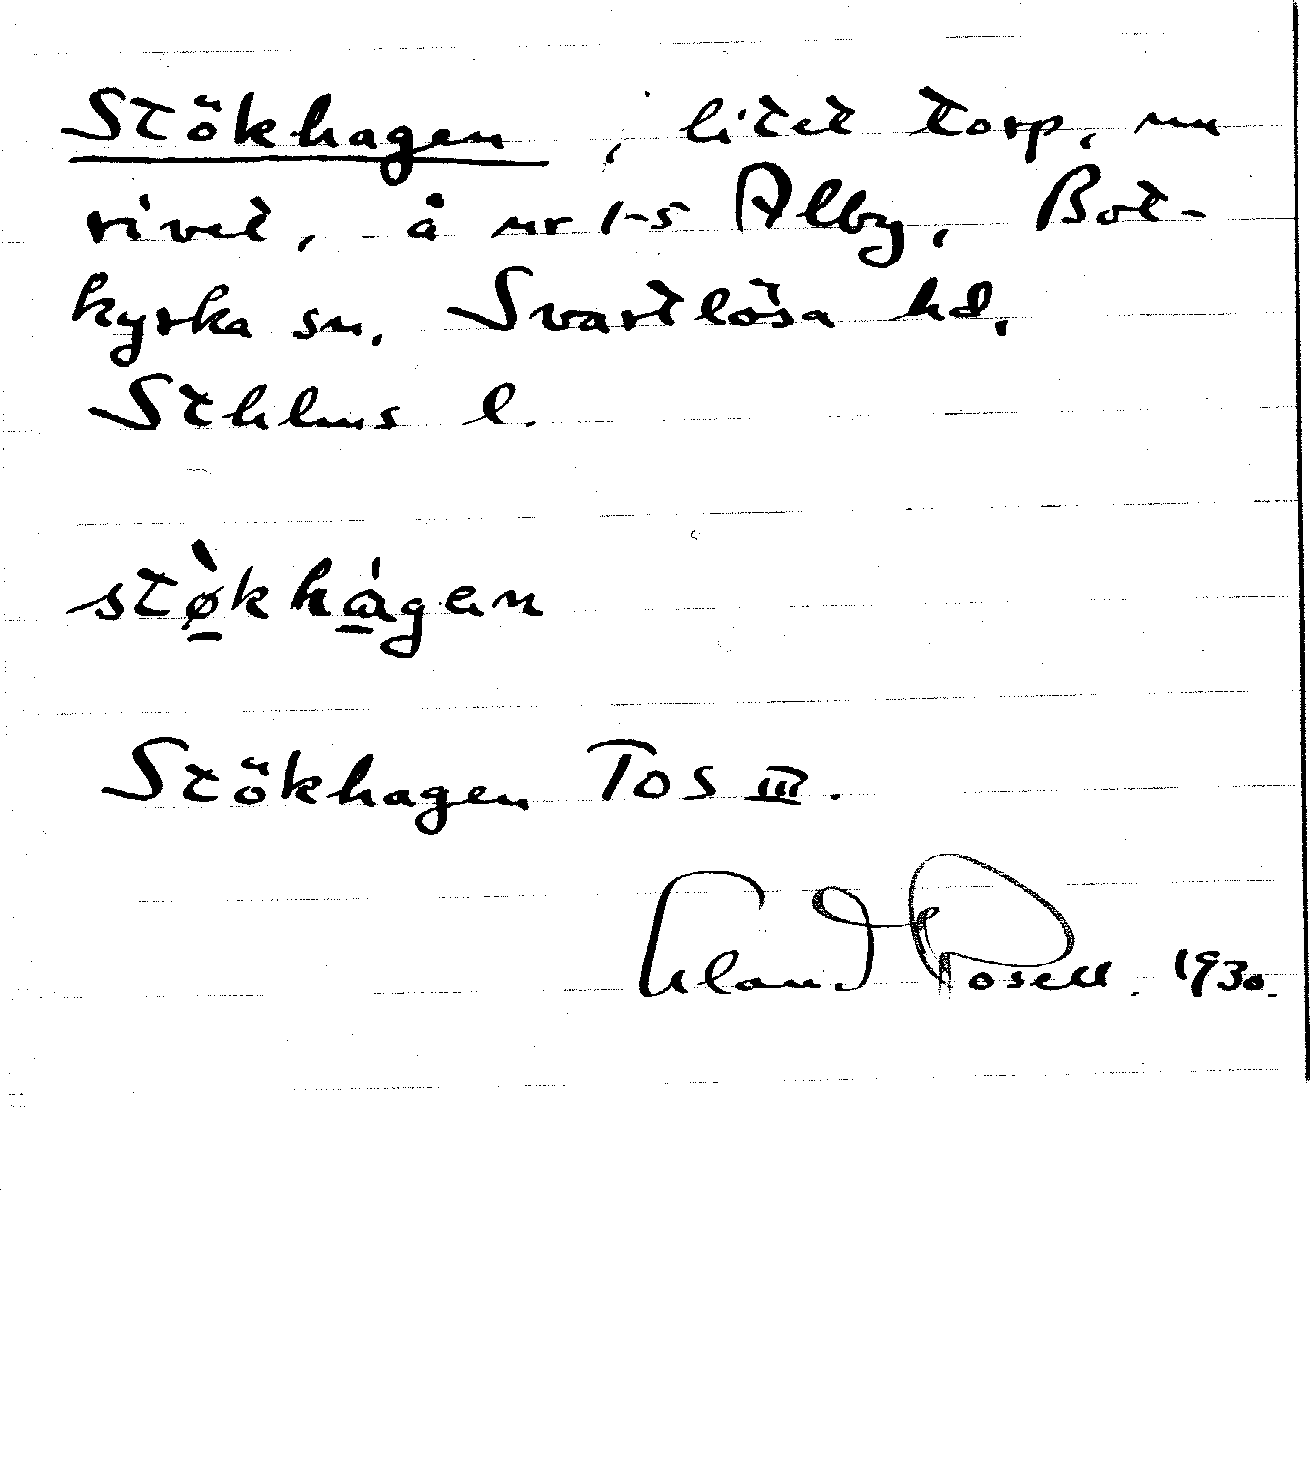 Stökhagen, litet torp, nu
rivet, å nr 1-5 Alby, Bot-
kyrka sn. Svartlösa hd.
Sthlms l.
stø̀khágen
Stökhagen TOS III.
Erland Rosell. 1930.